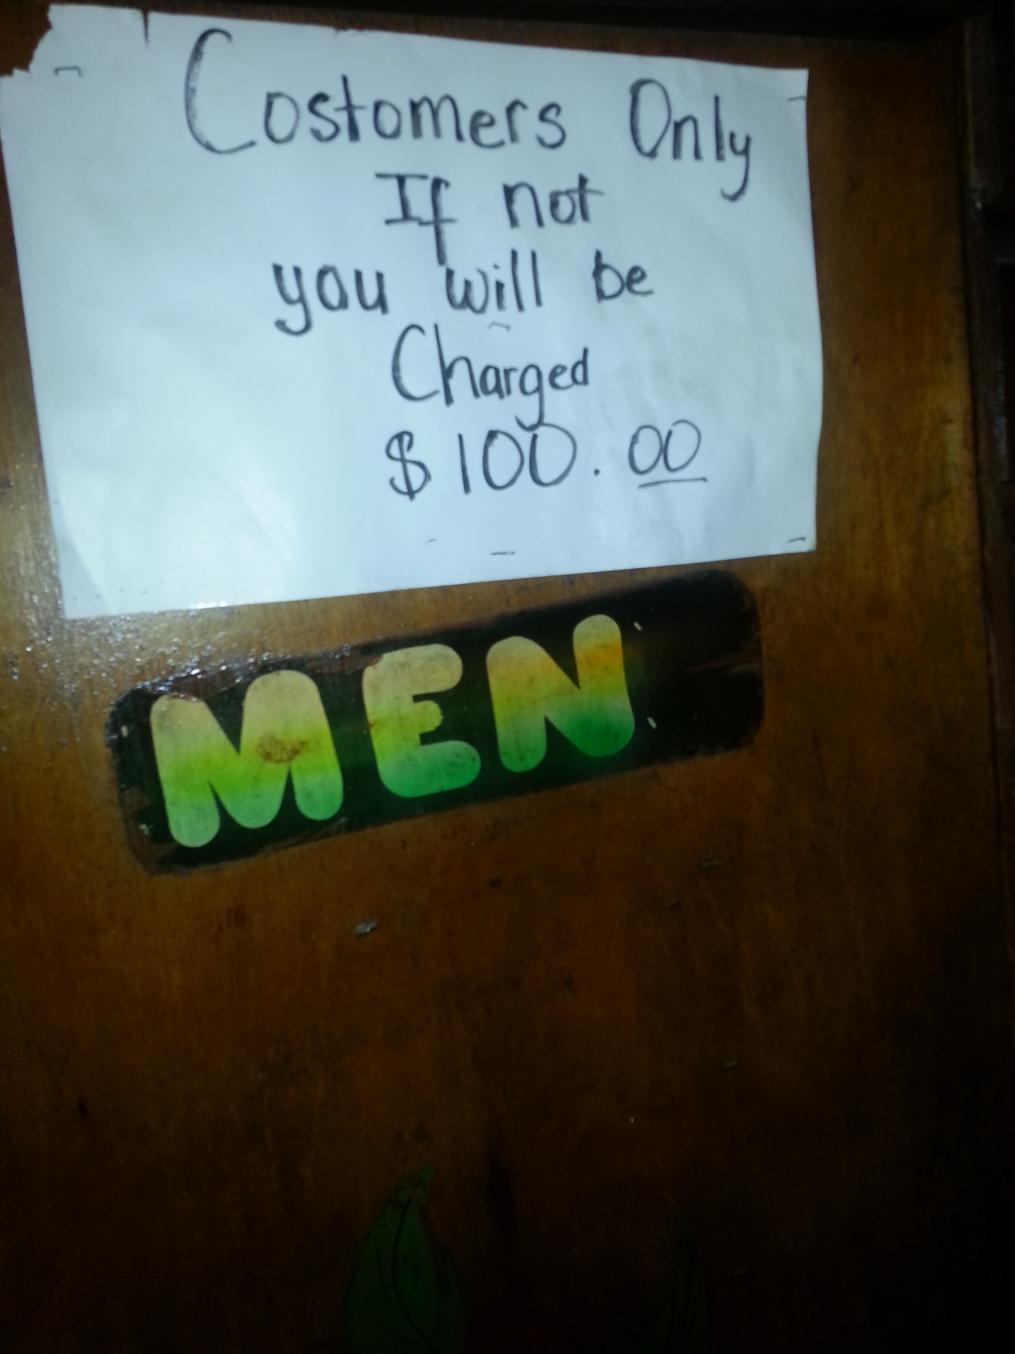 Costomers Only
If not
you will be
Charged
$100.00
MEN